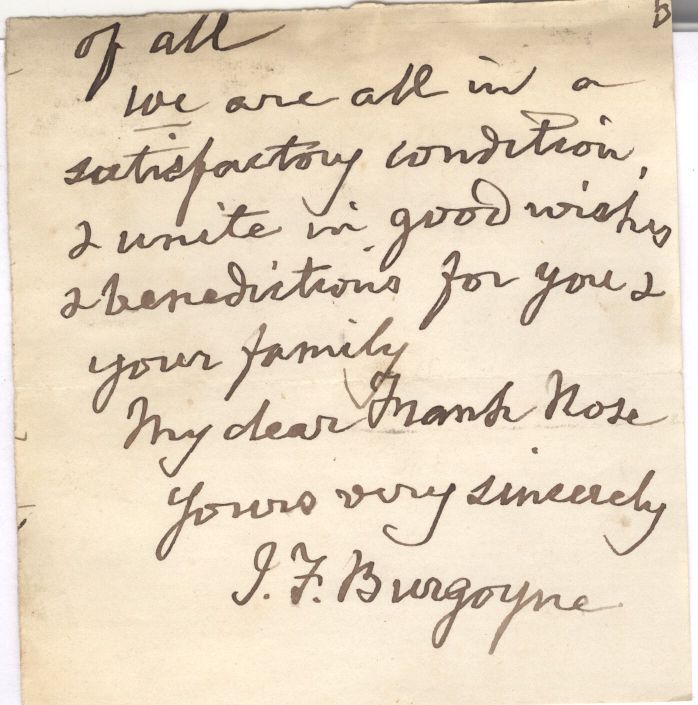 of all
we are all in a
satisfactory condition,
& unite in good wishes
& benedictions for you &
your family
My dear Frank Rose
Yours very sincerely
J. F. Burgoyne